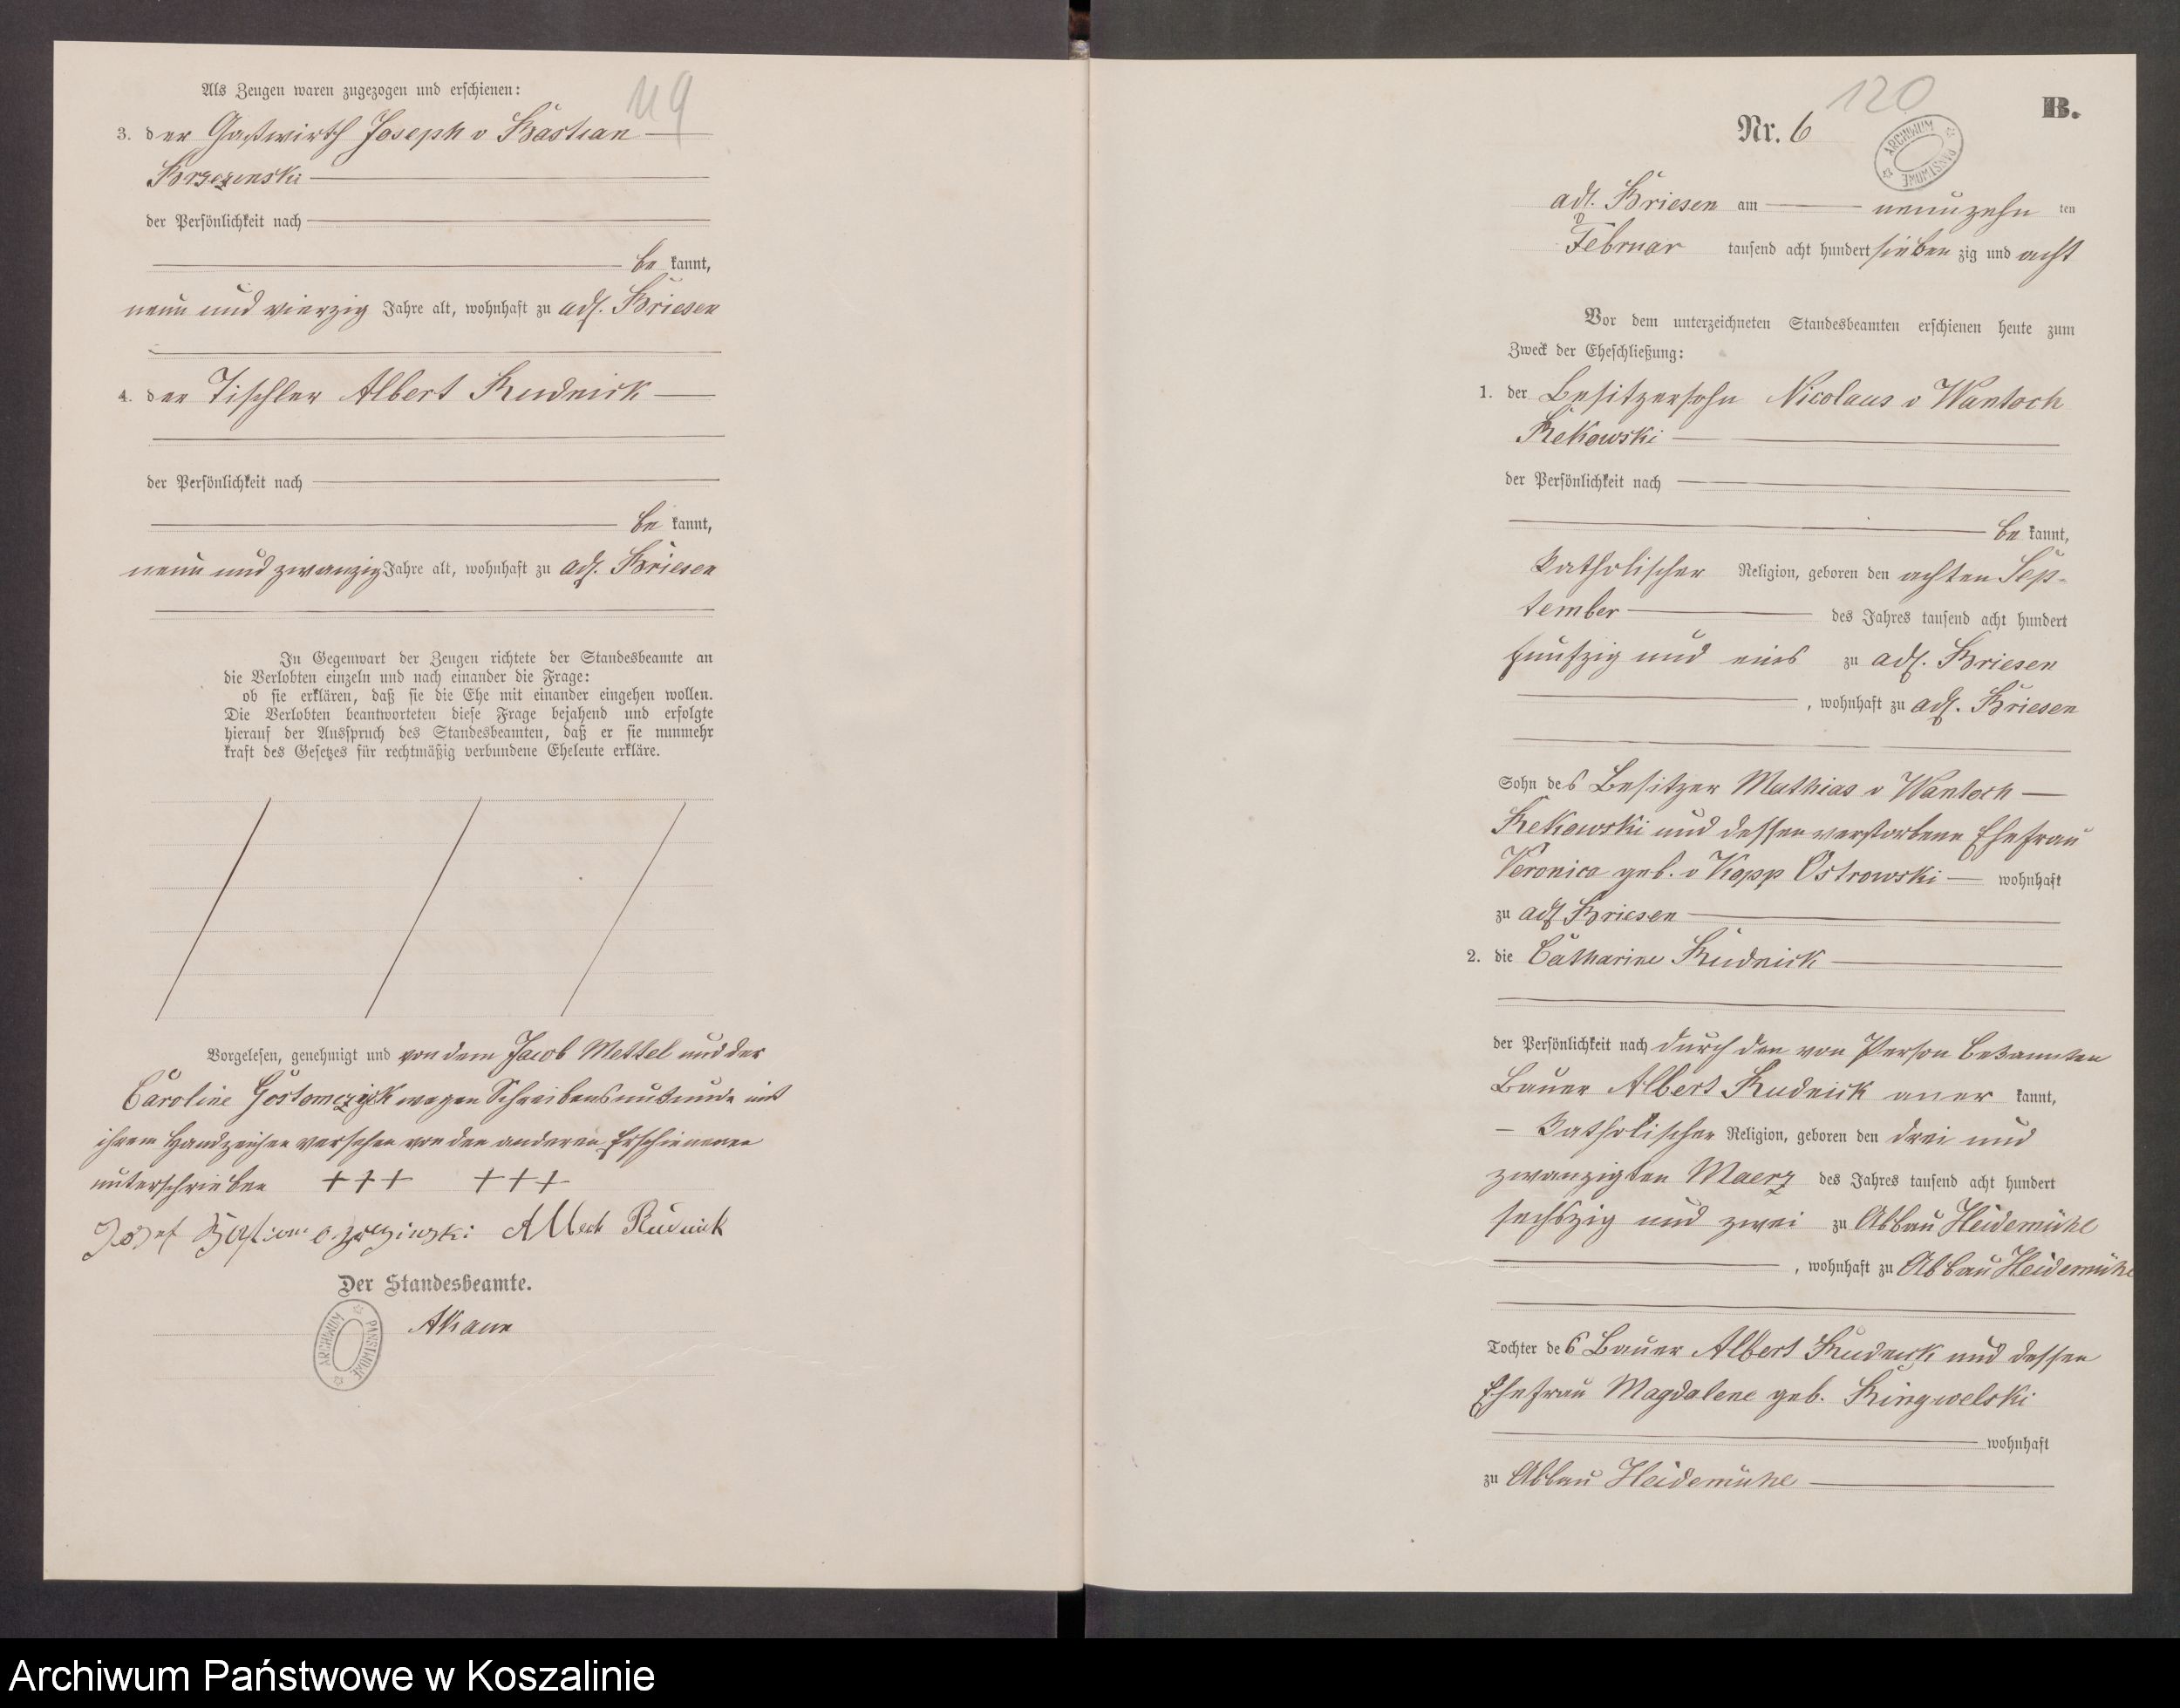 119
Als Zeugen waren zugezogen und erschienen:
3. der Gastwirth Joseph v Bastian —
Brzezinski —
der Persönlichkeit nach —
— be kannt,
neun und vierzig Jahre alt, wohnhaft zu adl. Briesen
4. der Tischler Albert Rudnick —
der Persönlichkeit nach —
— be kannt,
neun und zwanzig Jahre alt, wohnhaft zu adl. Briesen
In Gegenwart der Zeugen richtete der Standesbeamte an
die Verlobten einzeln und nach einander die Frage:
ob sie erklären, daß sie die Ehe mit einander eingehen wollen.
Die Verlobten beantworteten diese Frage bejahend und erfolgte
hierauf der Ausspruch des Standesbeamten, daß er sie nunmehr
kraft des Gesetzes für rechtmäßig verbundene Eheleute erkläre.
Vorgelesen, genehmigt und von dem Jacob Mettel und der
Caroline wegen Schreibensunkunde mit
ihrem Handzeichen versehen von den anderen Erschienenen
unterschrieben +++ +++
Josef Rudnick
Der Standesbeamte.
ARCHIWUM PAŃSTWOWE
120
B.
Nr. 6
ARCHIWUM PAŃSTWOWE
adl. Briesen am — neunzehn ten
Februar tausend acht hundert sieben zig und acht
Vor dem unterzeichneten Standesbeamten erschienen heute zum
Zweck der Eheschließung:
1. der Besitzersohn Nicolaus v Wantoch
Rekowski —
der Persönlichkeit nach —
— be kannt,
katholischer Religion, geboren den achten Sep-
tember — des Jahres tausend acht hundert
funfzig und eins zu adl. Briesen
—, wohnhaft zu adl. Briesen
Sohn des Besitzer Mathias v Wantoch —
Rekowski und dessen verstorbene Ehefrau
Veronica geb. v Kopp Ostrowski — wohnhaft
zu adl Briesen —
2. die Catharine Rudnick —
der Persönlichkeit nach durch den von Person bekannten
Bauer Albert Rudnick aner kannt,
— katholischer Religion, geboren den drei und
zwanzigten Maerz des Jahres tausend acht hundert
sechszig und zwei zu Abbau Heidemühl
—, wohnhaft zu Abbau Heidemühl
Tochter des Bauer Albert Rudnick und dessen
Ehefrau Magdalene geb. Ringwelski
— wohnhaft
zu Abbau Heidemühl —
Archiwum Państwowe w Koszalinie